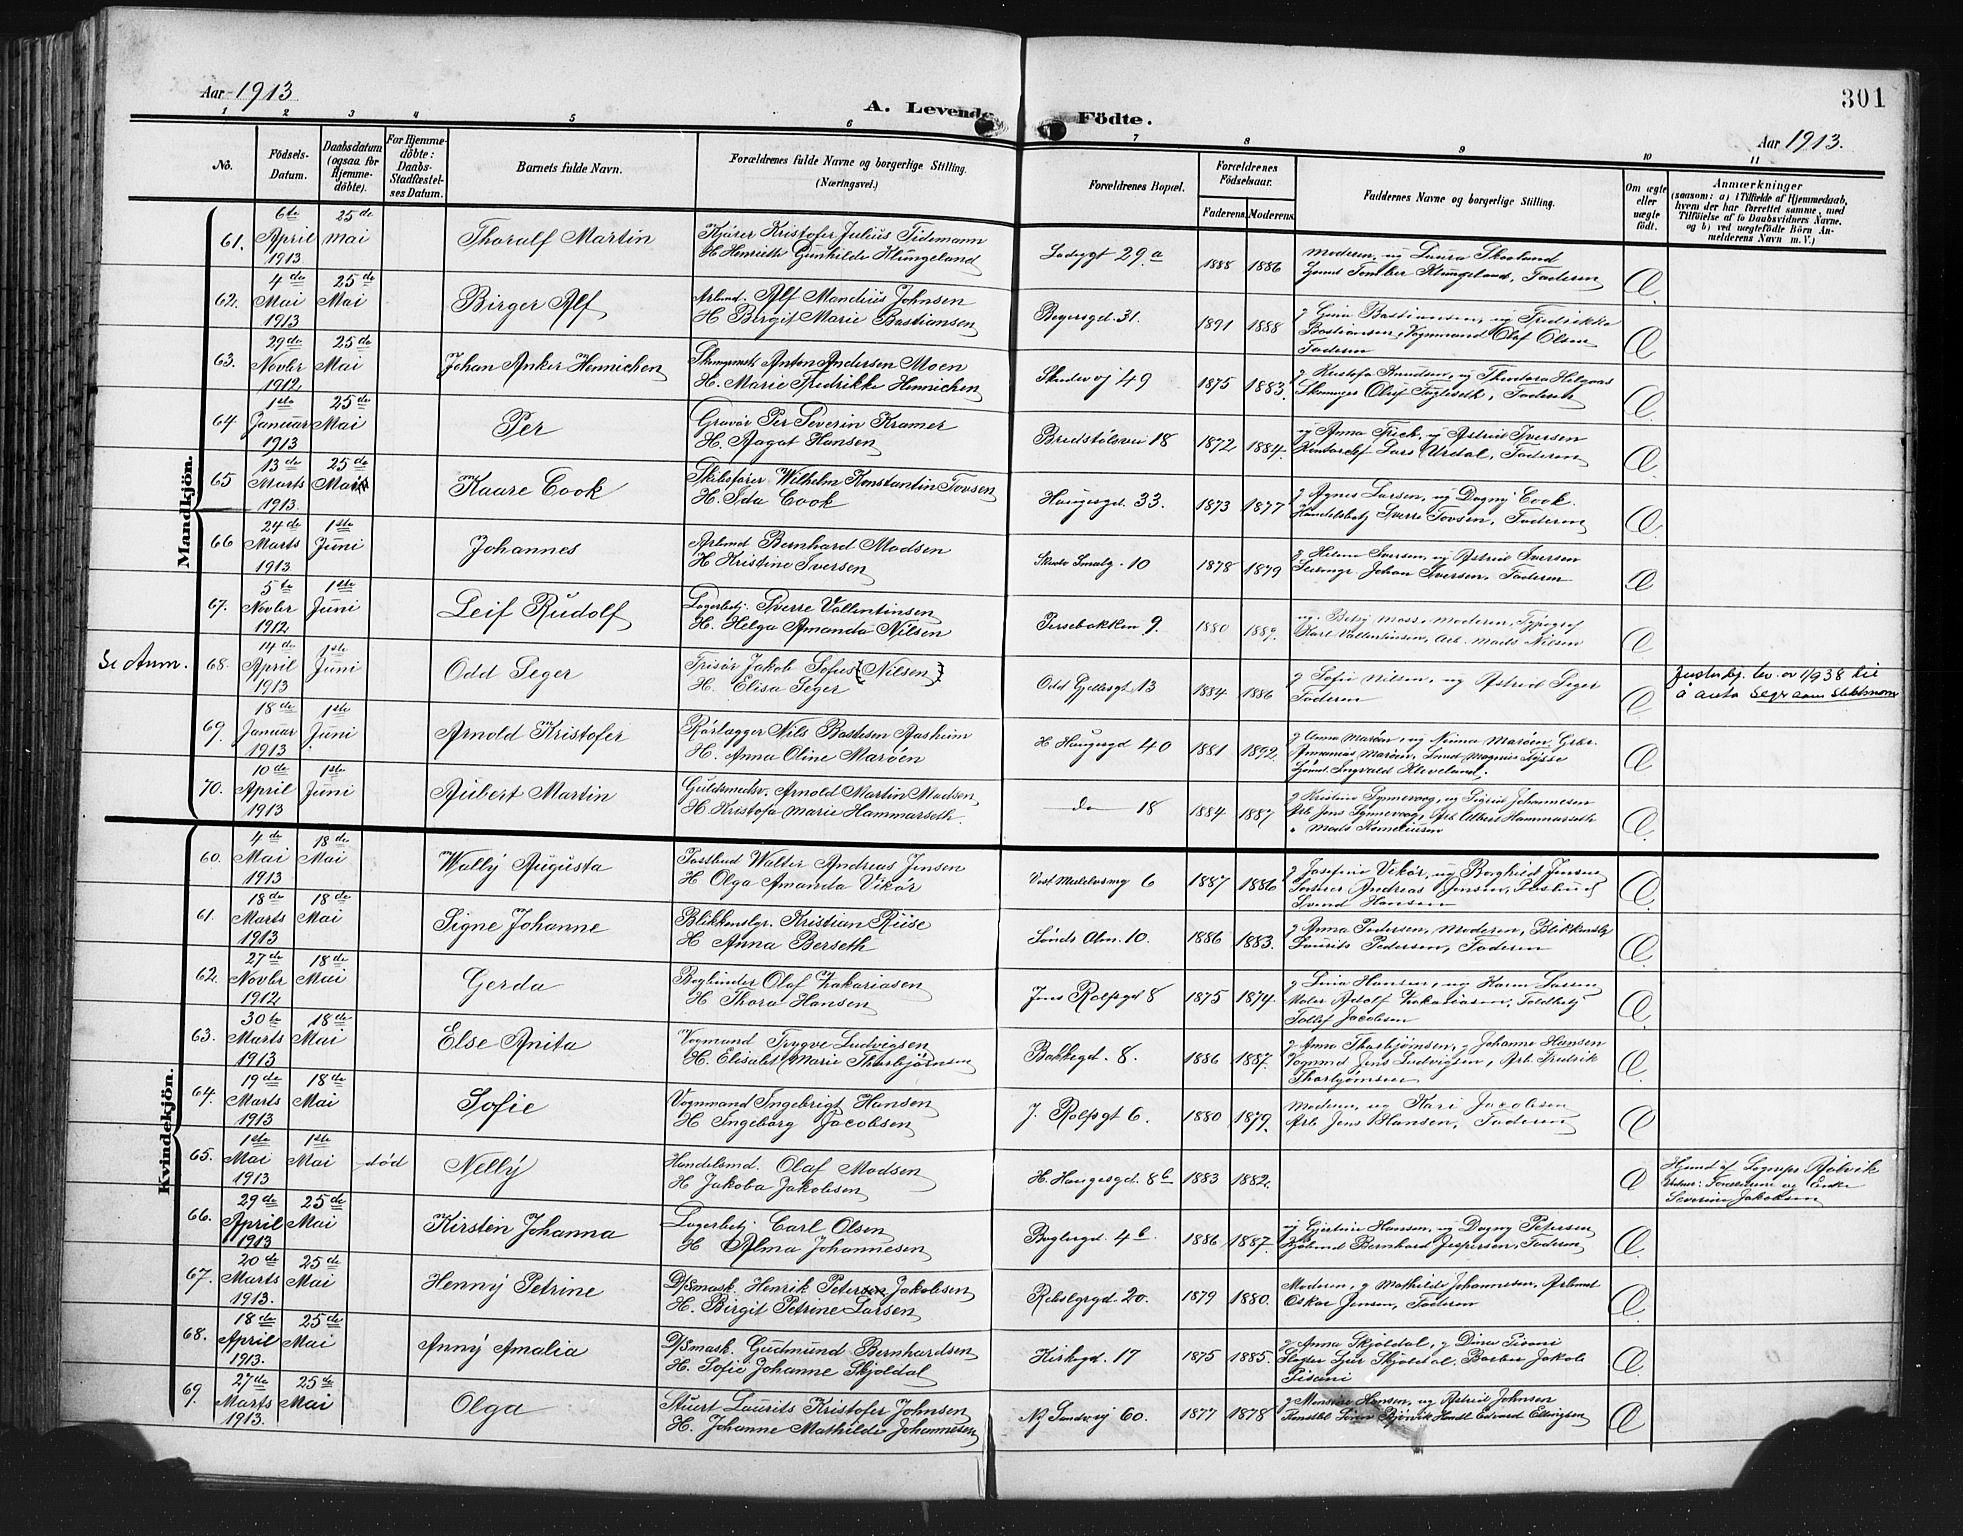 Aar 1913
A. Levende Födte.
301
Aar 1913.
1 2 3 4 5 6 7 8 9 10 11
No.
Födsels-Datum.
Daabsdatum (ogsaa for Hjemme-döbte).
For Hjemme-döbte: Daabs-Stadfæstel-ses Datum.
Barnets fulde Navn.
Forældrenes fulde Navne og borgerlige Stilling.
(Næringsvei.)
Forældrenes Bopæl.
Forældrenes Födselsaar.
Faderens. Moderens.
Faddernes Navne og borgerlige Stilling.
Om ægte eller uægte födt.
Anmærkninger
(saasom: a) i Tilfælde af Hjemmedaab, hvem der har forrettet samme, med Tilföielse af to Daabsvidners Navne, og b) ved uægtefödte Börn Anmelderens Navn m. V.)
Mandkjön.
61. 6te April 1913 25de Mai Thoralf Martin Kjører Kristofer Julius Tidemann
H. Henriette Gunhilde Klungeland 29 a 1888 1886 Moderen, Laura Skouland
Klungeland, Faderen
62. 4de Mai 1913 25de Mai Birger Alf Arbmd. Alf Mandius Johnsen
H Birgit Marie Bastiansen Bøgersgd. 31. 1891 1888 J Gina Bastiansen, ug Fredrikke
Bastiansen, Vognmand Olaf Olsen
Faderen
63. 29de Novbr 1912 25de Mai Johan Anker Hennichen Skomgrmstr Anton Andersen Moen
H. Marie Fredrikke Hennichen 49 1875 1883. Kristofa Knudsen, ug Theodora
Skomager Oluf Fuglseth, Faderen
64 1ste Januar 1913 25de Mai Per Gravør Per Severin Kramer
H. Aagot Hansen Bredstølsvei 18 1872 1884. ug Anna Frich, ug Astrid Iversen
Lars Urdal, Faderen
65 13de Marts 1913 25de Mai Kaare Cook Skibsfører Wilhelm Konstantin Tovsen
H. Ida Cook Haugesgd. 33. 1873 1877 J Agnes Larsen, ug Dagny Cook.
Handelsbetj Sverre Tovsen, Faderen
66 24de Marts 1913 1ste Juni Johannes Arbmd Bernhard Madsen
H Kristine Iversen 10 1878 1879 J Helene Iversen, ug Astrid Iversen
Johan Iversen, Faderen
67. 5te Novbr 1912 1ste Juni Leif Rudolf Lagerbetj. Sverre Vallentinsen
H. Helga Amanda Nilsen Persebakken 9. 1880 1889. ug. Betsy Moss, Moderen, Typograf
Karl Vallentinsen, Arb. Mads Nilsen
Se Anm. 68. 14de April 1913 1ste Juni Odd Seger Frisør Jakob Sofus (Nilsen)
H. Elisa Seger Odd Gjellesgt 13 1884 1886 J Sofie Nilsen, ug Astrid Seger
Faderen Justisdep. bev. av 1938 til
å anta Seger som slektsnavn
69. 18de Januar 1913 1ste Juni Arnold Kristofer Rørlægger Nils Aasheim
H. Anna Oline Marøen H Haugesgd 40 1881 1892. J Anna Marøen, ug Nima Marøen
Ananias Marøen, Magnus
Ingvald Kleveland.
70. 10de April 1913 1ste Juni Aubert Martin Guldsmedsv. Arnold Martin Madsen
H Kristofa Marie Hammarseth. do 18 1884 1887 J Kristine Synnevaag, ug Sigrid Johannesen
Arb Jens Synnevaag, Arb. Albert Hammarseth
" Mads Kornelíusen
Kvindekjön.
60. 4de Mai 1913 18de Mai Wally Augusta Postbud Walter Andreas Jensen
H Olga Amanda Vikør 6 1887 1886 J Josefine Vikør, ug Borghild Jensen
Andreas Jensen, Postbud
Svend Hansen
61. 18de Marts 1913 18de Mai Signe Johanne Blikkenslgr. Kristian Riise
H Anna Berseth Søndr Alm. 10. 1886 1883. J Anna Pedersen, Moderen, Blikkenslg
Laurits Pedersen, Faderen
62. 27de Novbr 1912 18de Mai Gerda Bogbinder Olaf Zakariasen
H Thora Hansen Jens Rolfsgd 8 1875 1874. J Lina Hansen, ug Karen Larsen
Maler Adolf Zakariasen, Toldbetj
Tollef Jacobsen
63. 30te Marts 1913 18de Mai Else Anita Vogmand Trygve Ludvigsen
H. Elisabet Marie Thorbjørnsen Bakkegd. 8. 1886 1887. J Anna Thorbjørnsen, J Johanne Hansen
Vogmnd Jens Ludvigsen, Arb. Fredrik
Thorbjørnsen
64. 19de Marts 1913 18de Mai Sofie Vognmand Ingebrigt Hansen
H Ingeborg Jacobsen J. Rolfsgt 6. 1880 1879. Moderen, ug Kari Jacobsen
Arb. Jens Hansen, Faderen
65. 1ste Mai 1913 1ste Mai død Nelly Handelsmd. Olaf Madsen
H Jakoba Jakobsen H. Haugesgd. 8b 1883 1882. Hjmd af Sognepr Rølvik
og Enke
Severine Jakobsen
66. 29de April 1913 25de Mai Kirsten Johanna Lagerbetj. Carl Olsen
H Alma Johannesen 4b. 1886 1887. ug Gjertine Hansen, ug Dagny Petersen
Bernhard Jespersen, Faderen
67. 20de Marts 1913. 25de Mai Henny Petrine D/Smask. Henrik Petersen Jakobsen
H. Birgit Petrine Larsen 20. 1879 1880. Moderen, J Mathilde Johannesen, Arbmd
Oskar Jensen, Faderen
68. 18de April 1913. 25de Mai Anny Amalia D/Smask. Gudmund Bernhardsen
H. Sofie Johanne Skjoldal Kirkegd. 17 1875 1885. J Anna Skjoldal, J Dina Pisani
Slagter Sjur Skjoldal, Barber Jakob
Pisani
69. 27de Marts 1913. 25de Mai Olga Stuert Laurits Kristofer Johnsen
H. Johanne Mathilde Johannesen Ny Sandvvj 60. 1877 1878 J Monsine Hansen, ug Astrid Johnsen
Edvard Ellingsen